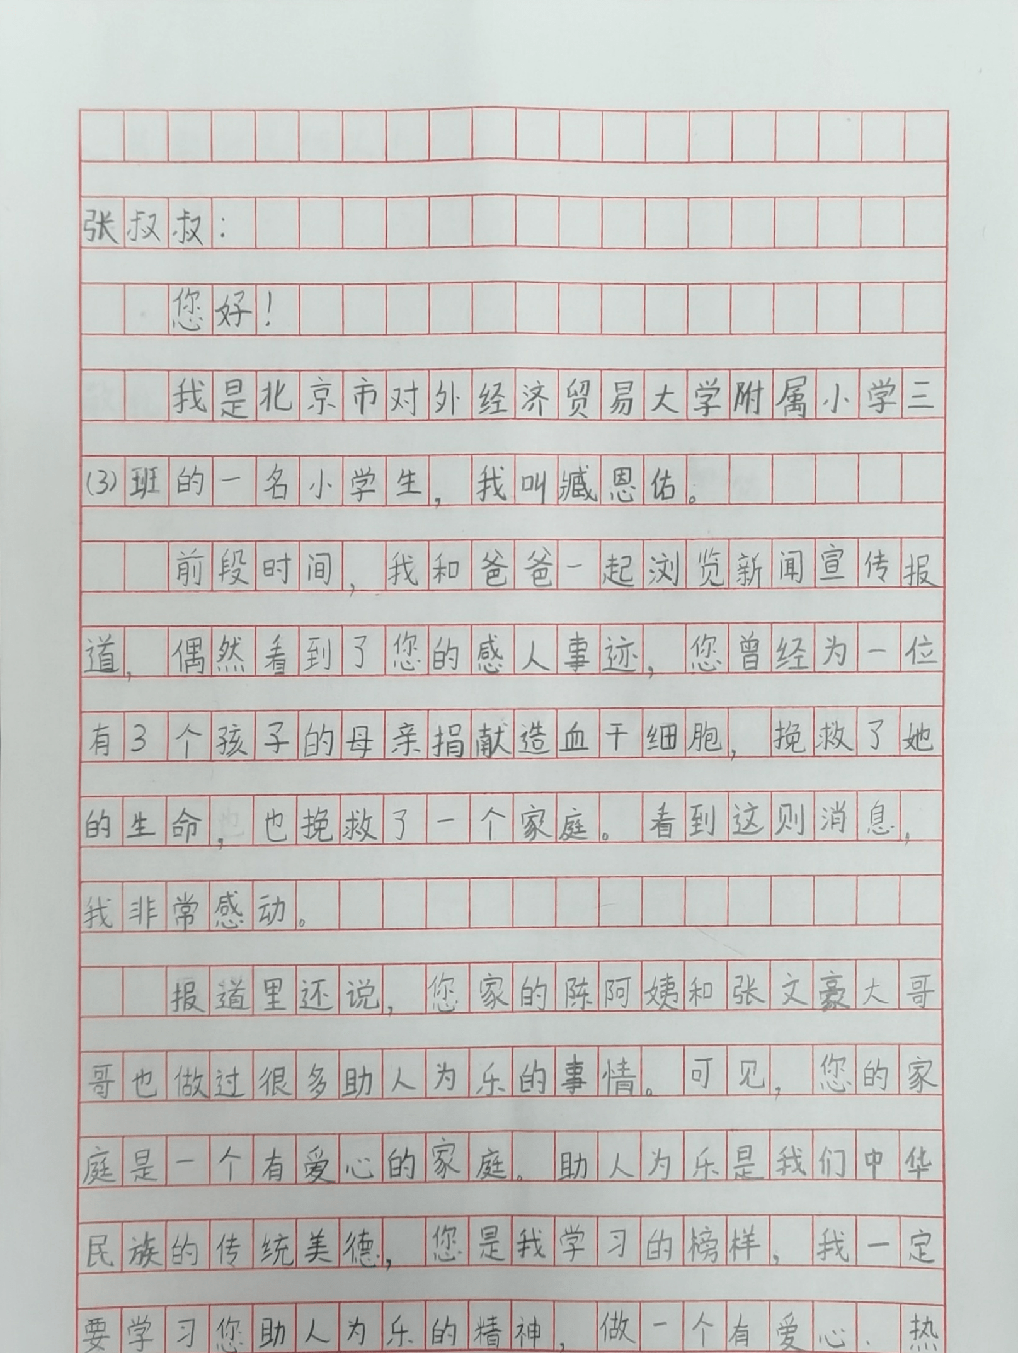 张叔叔：
您好！
我是北京市对外经济贸易大学附属小学三
(3)班的一名小学生，我叫臧恩佑。
前段时间，我和爸爸一起浏览新闻宣传报
道，偶然看到了您的感人事迹，您曾经为一位
有3个孩子的母亲捐献造血干细胞，挽救了她
的生命，也挽救了一个家庭。看到这则消息，
我非常感动。
报道里还说，您家的陈阿姨和张文豪大哥
哥也做过很多助人为乐的事情。可见，您的家
庭是一个有爱心的家庭。助人为乐是我们中华
民族的传统美德，您是我学习的榜样，我一定
要学习您助人为乐的精神，做一个有爱心、热